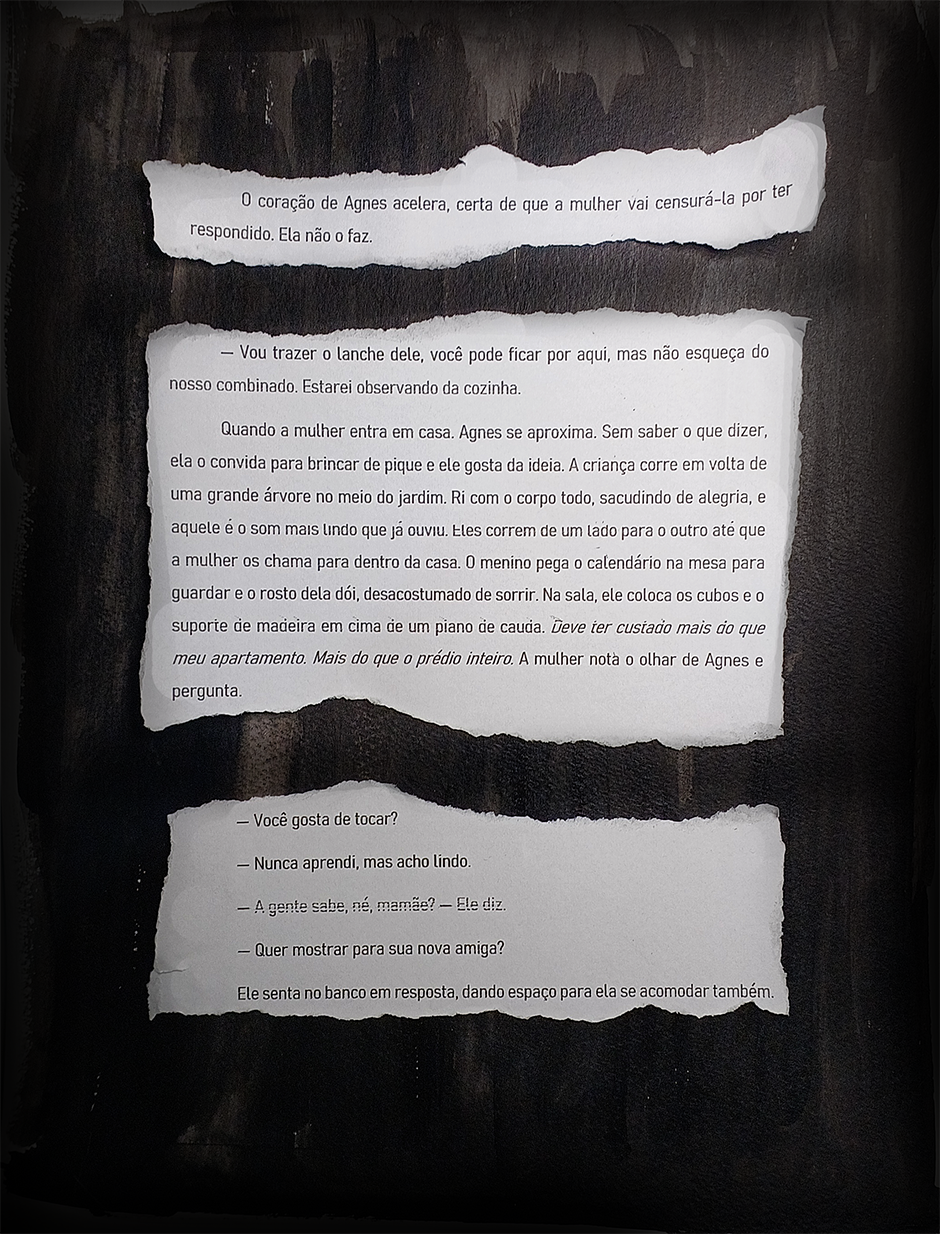 O coração de Agnes acelera, certa de que a mulher vai censurá-la por ter
respondido. Ela não o faz.
— Vou trazer o lanche dele, você pode ficar por aqui, mas não esqueça do
nosso combinado. Estarei observando da cozinha.
Quando a mulher entra em casa. Agnes se aproxima. Sem saber o que dizer,
ela o convida para brincar de pique e ele gosta da ideia. A criança corre em volta de
uma grande árvore no meio do jardim. Ri com o corpo todo, sacudindo de alegria, e
aquele é o som mais lindo que já ouviu. Eles correm de um lado para o outro até que
a mulher os chama para dentro da casa. O menino pega o calendário na mesa para
guardar e o rosto dela dói, desacostumado de sorrir. Na sala, ele coloca os cubos e o
suporte de madeira em cima de um piano de cauda. Deve ter custado mais do que
meu apartamento. Mais do que o prédio inteiro. A mulher nota o olhar de Agnes e
pergunta.
— Você gosta de tocar?
— Nunca aprendi, mas acho lindo.
— A gente sabe, né, mamãe? — Ele diz.
— Quer mostrar para sua nova amiga?
Ele senta no banco em resposta, dando espaço para ela se acomodar também.